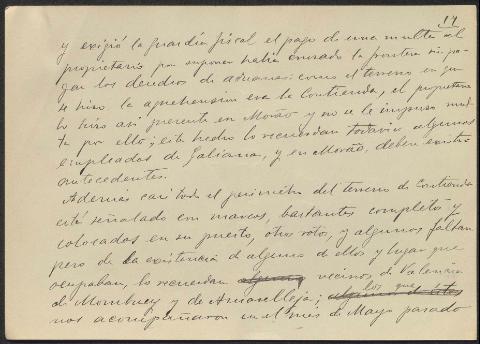 14
y exigió la guardia fiscal el pago de una multa al
propietario por suponer había cruzado la frontera sin pa-
gar los derechos de aduanas: como el terreno en que
se hizo la aprehension era la Contienda, el propietario
lo hizo así presente en Morão y no se le impuso mul-
ta por ello; este hecho lo recuerdan todavia algunos
empleados de Galiana, y en Morão, deben existir
antecedentes.
Ademas casi todo el perimetro del terreno de Contienda
está señalado con marcos, bastantes completos y
colocados en su puesto, otros rotos, y algunos faltan
pero de la existencia de algunos de ellos y lugar que
ocupaban, lo recuerdan vecinos de Valencia
de Mombuey y de Amarelleja; los que
nos acompañaron en el mes de Mayo pasado